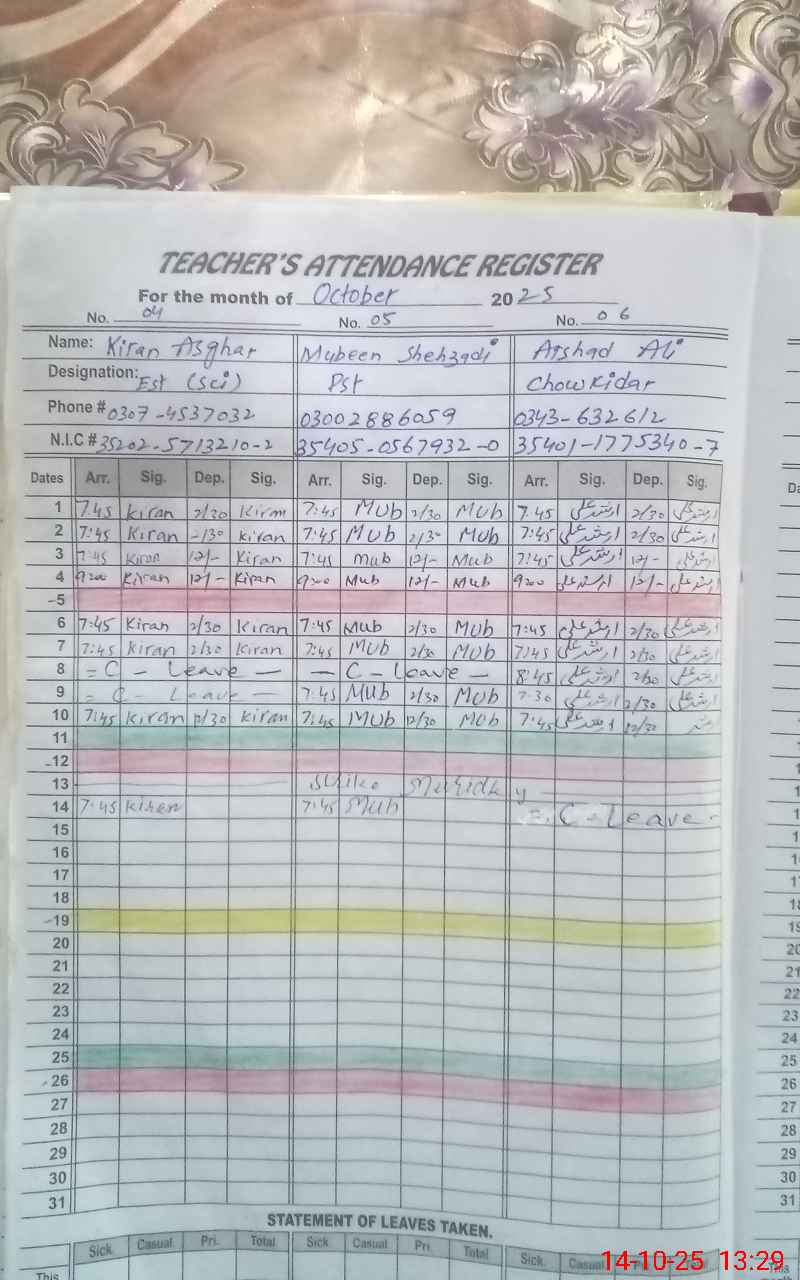 TEACHER'S ATTENDANCE REGISTER
For the month of October 2025
No. 04 No. 05 No. 06
Name: Kiran Asghar Mubeen Shehzadi Arshad Ali
Designation: Est (Sci) Pst Chowkidar
Phone # 0307-4537032 03002886059 0343-632612
N.I.C # 35202-5713210-2 35405-0567932-0 35401-1775340-7
Dates Arr. Sig. Dep. Sig. Arr. Sig. Dep. Sig. Arr. Sig. Dep. Sig.
1 7:45 Kiran 2/30 Kiran 7:45 MUb 2/30 MUb 7:45 ارشد علی 2/30 ارشد علی
2 7:45 Kiran -130 Kiran 7:45 MUb 2/30 MUb 7:45 ارشد علی 2/30 ارشد علی
3 7:45 Kiran 12/- Kiran 7:45 Mub 12/- Mub 7:45 ارشد علی 12/-
4 9:00 Kiran 12/- Kiran 9:00 Mub 12/- Mub 9:00 ارشد علی 12/- ارشد علی
-5
6 7:45 Kiran 2/30 Kiran 7:45 Mub 2/30 MUb 7:45 ارشد علی 2/30 ارشد علی
7 7:45 Kiran 2/30 Kiran 7:45 MUb 2/30 MUb 7:45 ارشد علی 2/30 ارشد علی
8 = C - Leave - - C - Leave - 8:45 ارشد علی 2/30 ارشد علی
9 = C - Leave - 7:45 MUb 2/30 MUb 7:30 ارشد علی 2/30 ارشد علی
10 7:45 Kiran 12/30 Kiran 7:45 MUb 12/30 MUb 7:45 ارشد علی 12/30
11
-12
13 Strike Muridky
14 7:45 Kiren 7:45 Mub = C - Leave -
15
16
17
18
-19
20
21
22
23
24
25
-26
27
28
29
30
31
STATEMENT OF LEAVES TAKEN.
Sick Casual Pri. Total Sick Casual Pri. Total Sick. Casual
This
14-10-25 13:29